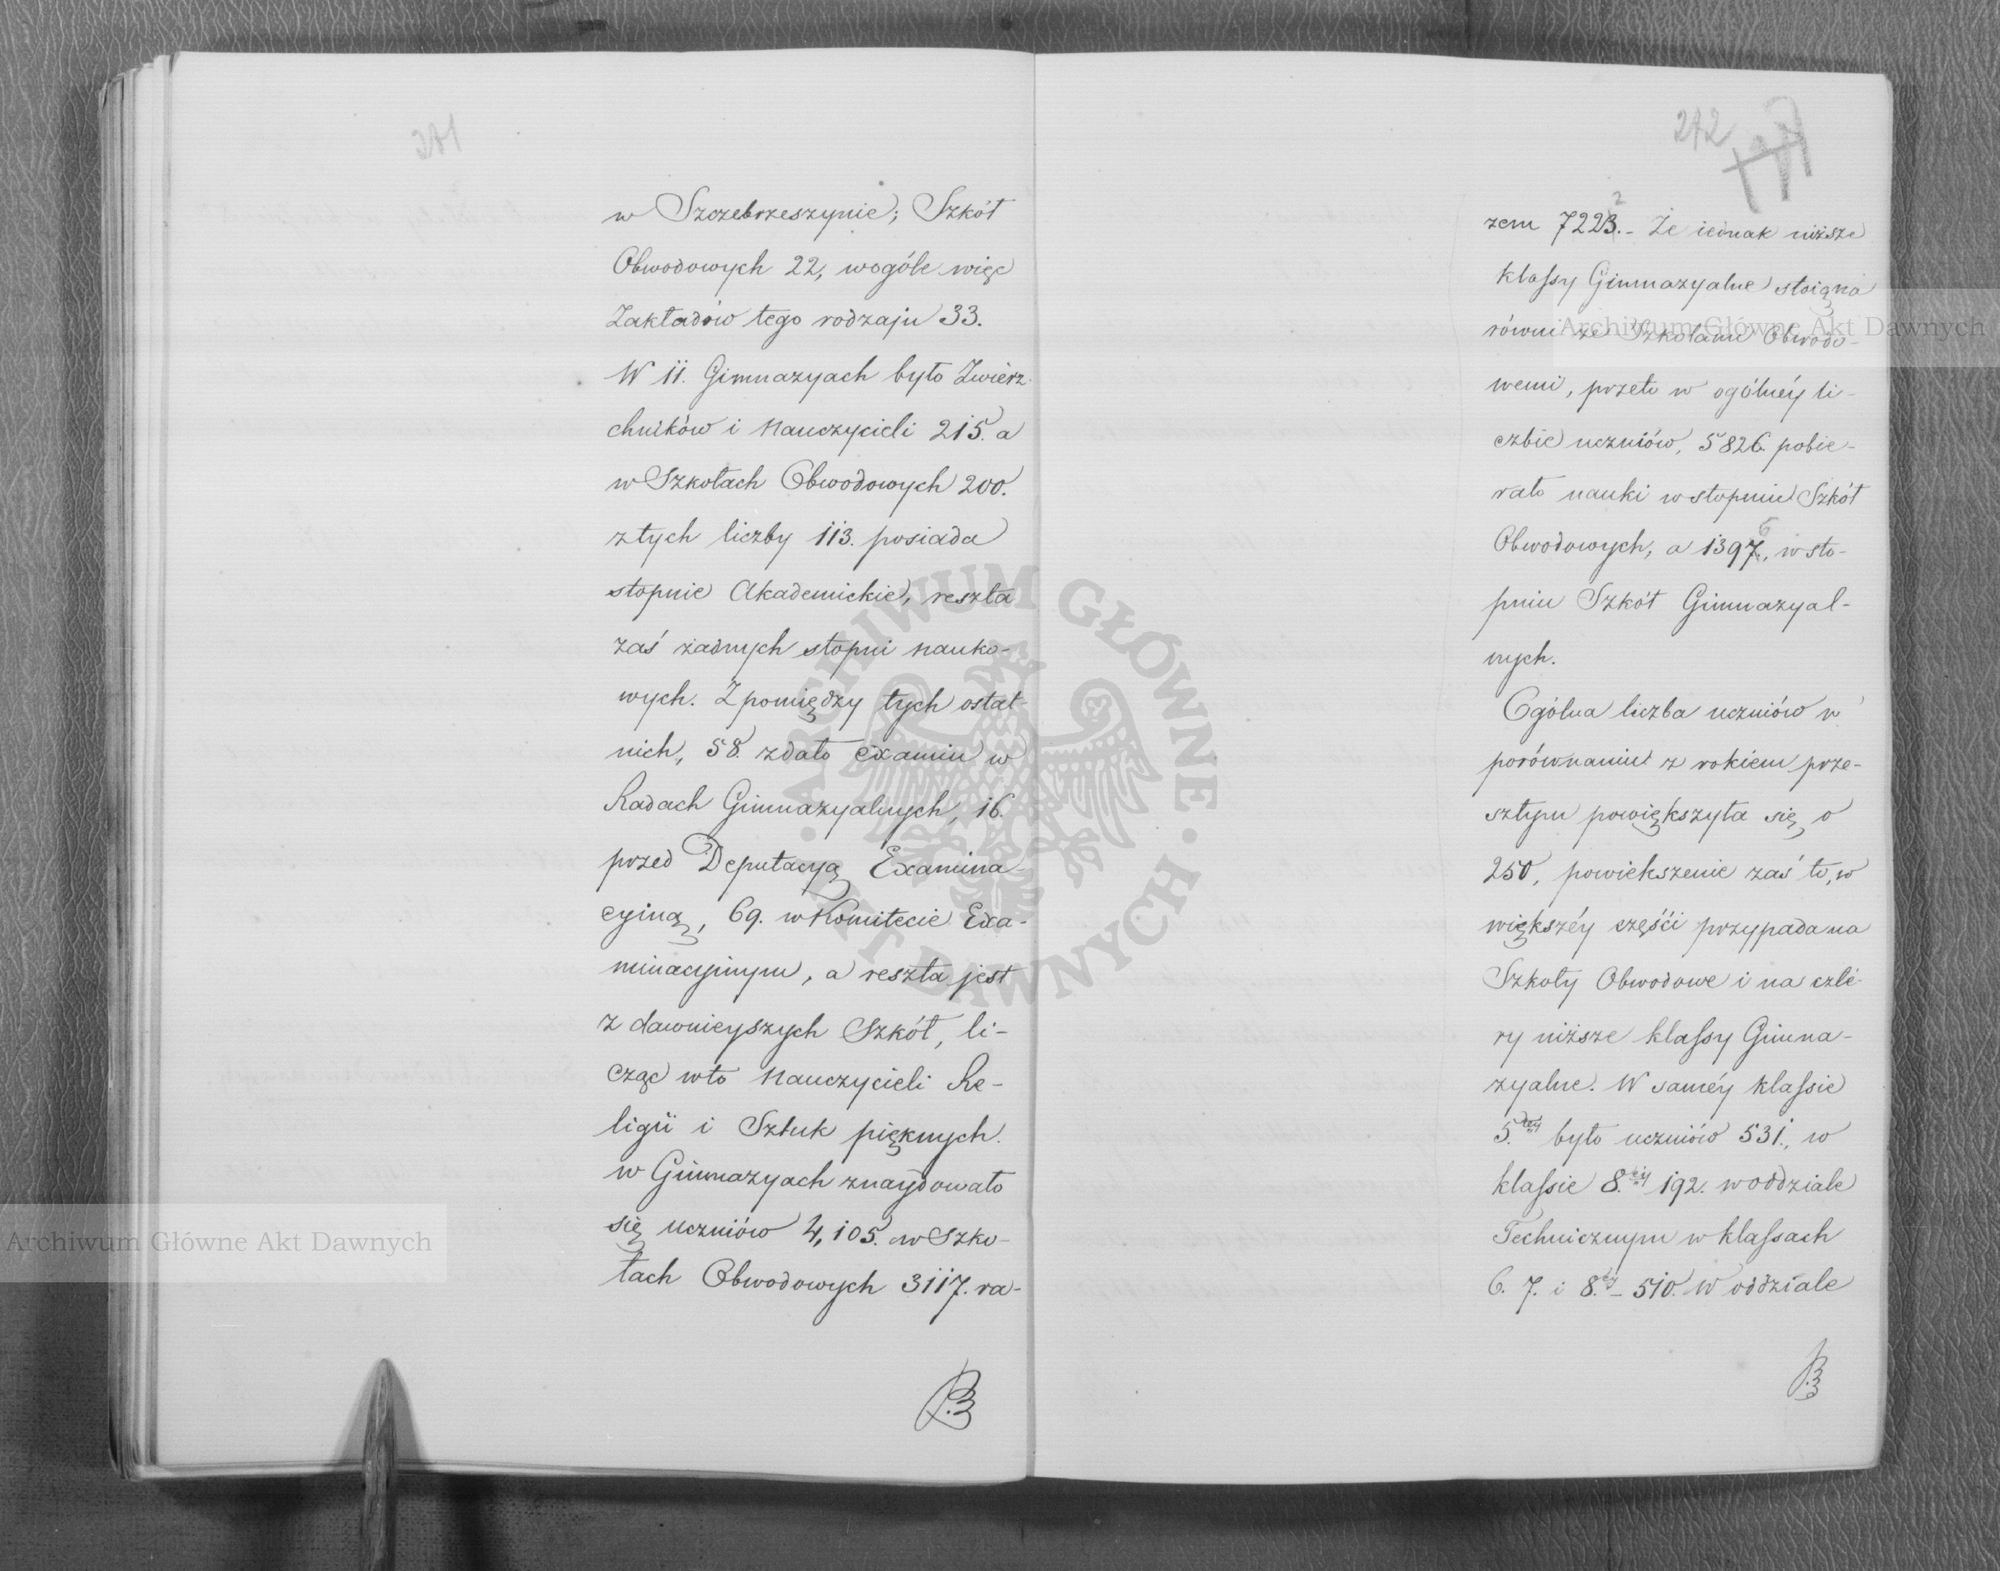 271
w Szczebrzeszynie; Szkół
Obwodowych 22, wogóle więc
Zakładów tego rodzaju 33.
W 11. Gimnazyach było Zwierz-
chników i Nauczycieli 215. a
w Szkołach Obwodowych 200.
z tych liczby 113. posiada
stopnie Akademickie, reszta
zaś żadnych stopni nauko-
wych. Z pomiędzy tych ostat-
nich, 58. zdało examin w
Radach Gimnazyalnych, 16.
przed Deputacyą Examina-
cyiną, 69. w Komitecie Exa-
minacyinym, a reszta jest
z dawnieyszych Szkół, li-
cząc w to Nauczycieli Re-
ligii i Sztuk pięknych.
w Gimnazyach znaydowało
się Uczniów 4,105. w Szko-
łach Obwodowych 3117. ra-
272
zem 7223. 2 Że iednak niższe
klassy Gimnazyalne stoią na
równi ze Szkołami Obwodo-
wemi, przeto w ogólnéy li-
czbie uczniów, 5826. pobie-
rało nauki w stopniu Szkół
Obwodowych, a 1397. 6, w sto-
pniu Szkół Gimnazyal-
nych.
Ogólna liczba uczniów w
porównaniu z rokiem prze-
szłym powiększyła się o
250, powiekszenie zaś to, w
większéy częśći przypada na
Szkoły Obwodowe i na czte-
ry niższe klassy Gimna-
zyalne. W saméy klassie
5.tey było uczniów 531., w
klassie 8.ey 192. w oddziale
Technicznym w klassach
6. 7. i 8.ey – 510. W oddziale
Archiwum Główne Akt Dawnych
Archiwum Główne Akt Dawnych
ARCHIWUM GŁÓWNE AKT DAWNYCH